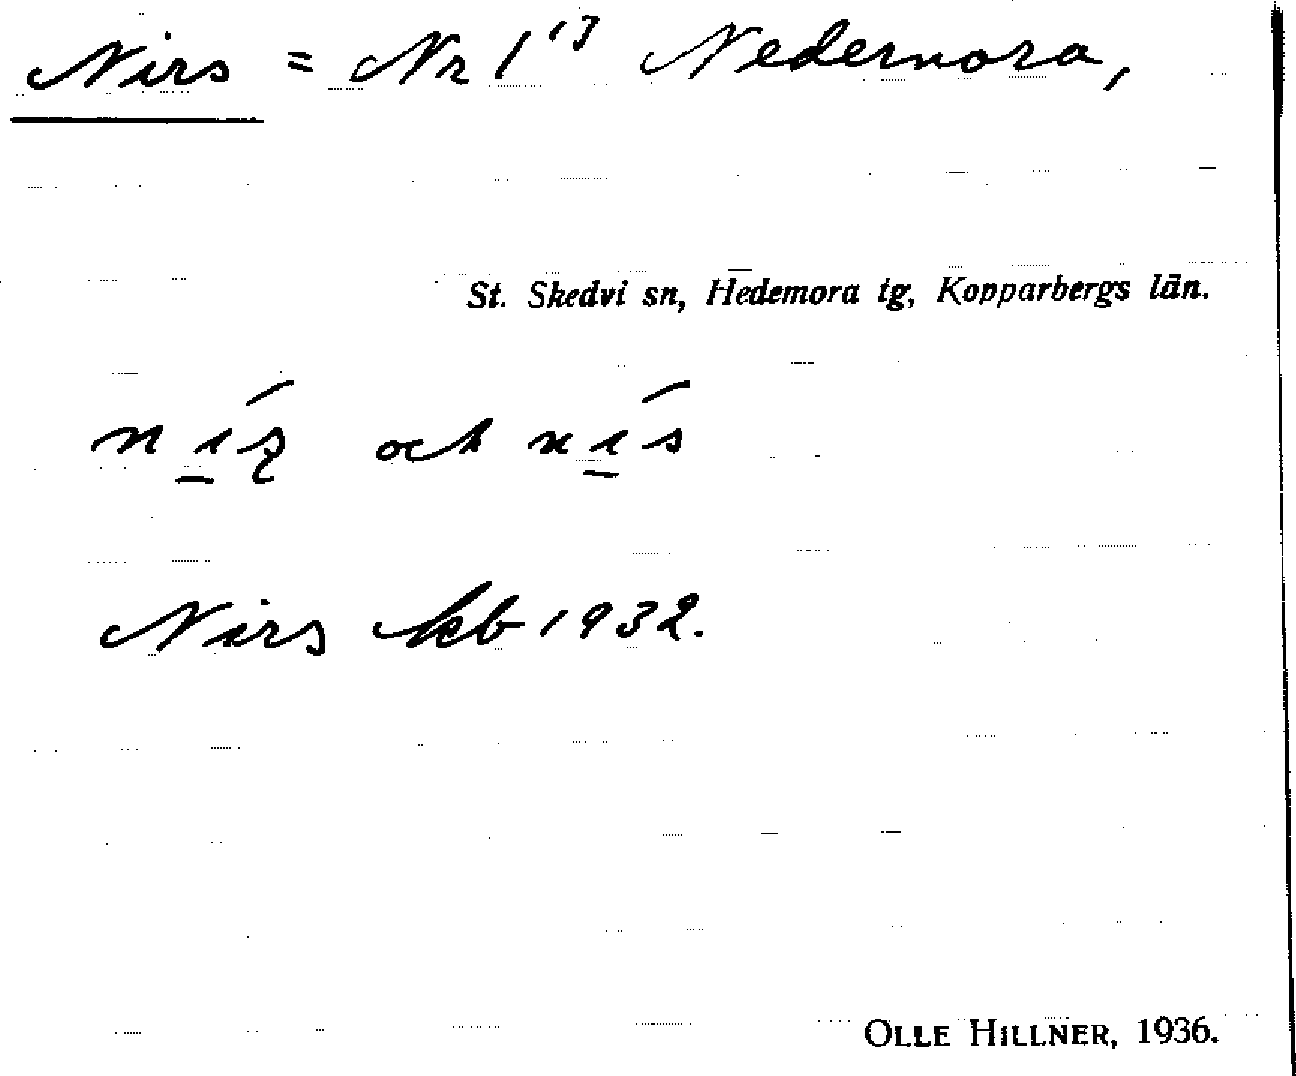 Nirs = Nr 1¹⁷ Nedernora,
St. Skedvi sn, Hedemora tg, Kopparbergs län.
och
Nirs kb 1932.
OLLE HILLNER, 1936.